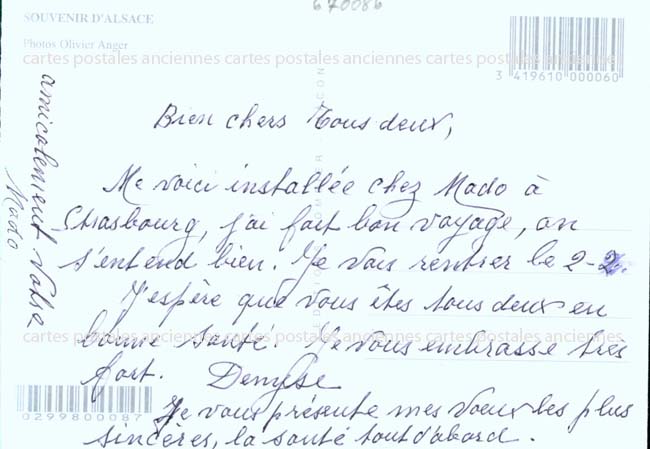 670086
SOUVENIR D'ALSACE
Photos Olivier Anger
cartes postales anciennes cartes postales anciennes cartes postales anciennes
3 419610 000060
Bien chers Tous deux,
Me voici installée chez Mado à
Strasbourg, j'ai fait bon voyage, on
s'entend bien. Je vais rentrer le 2-2.
J'espère que vous êtes tous deux en
cartes postales anciennes cartes postales anciennes cartes postales anciennes
bonne santé. Je vous embrasse très
fort. Denyse
0299800087
Je vous présente mes vœux les plus
sincères, la santé tout d'abord.
amicalement votre
Mado